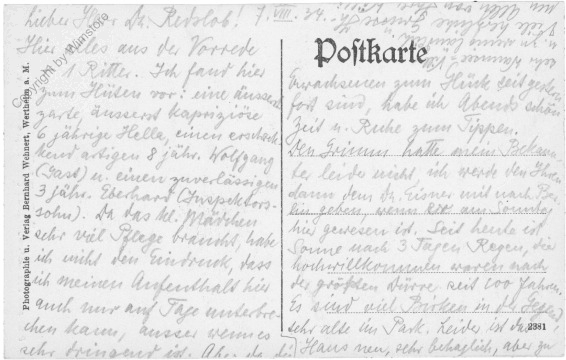 Lieber Herr Dr. Redslob! 7. VIII. 34.
Hier alles aus der Vorrede
1 Ritter. Ich fand hier
zum Hüten vor: eine äusserst
zarte, äusserst kapriziöse
6 jährige Hella, einen erschreckend
artigen 8 jähr. Wolfgang
(Gast) u. einen zuverlässigen
3 jähr. Eberhard (Inspektorssohn).
Da das kl. Mädchen
sehr viel Pflege braucht, habe
ich nicht den Eindruck, dass
ich meinen Aufenthalt hier
auch nur auf Tage unterbrechen
kann, ausser wenn es
sehr dringend ist. Aber da die
Postkarte
Erwachsenen zum Glück seit gestern
fort sind, habe ich Abends schön
Zeit u. Ruhe zum Tippen.
Den Grimm hatte mein Bekannter
leider nicht, ich werde den Ihren
dann dem Dr. Eisner mit nach Berlin
geben, wenn er am Sonntag
hier gewesen ist. Seit heute ist
Sonne nach 3 Tagen Regen, die
hochwillkommen waren nach
der größten Dürre seit 100 Jahren.
Es sind viel Birken in der Gegend
sehr alte im Park. Leider ist das
Haus neu, sehr behaglich, aber zu
2381
Photographie u. Verlag Bernhard Wehnert, Wertheim a. M.
Copyright by Pumstoro